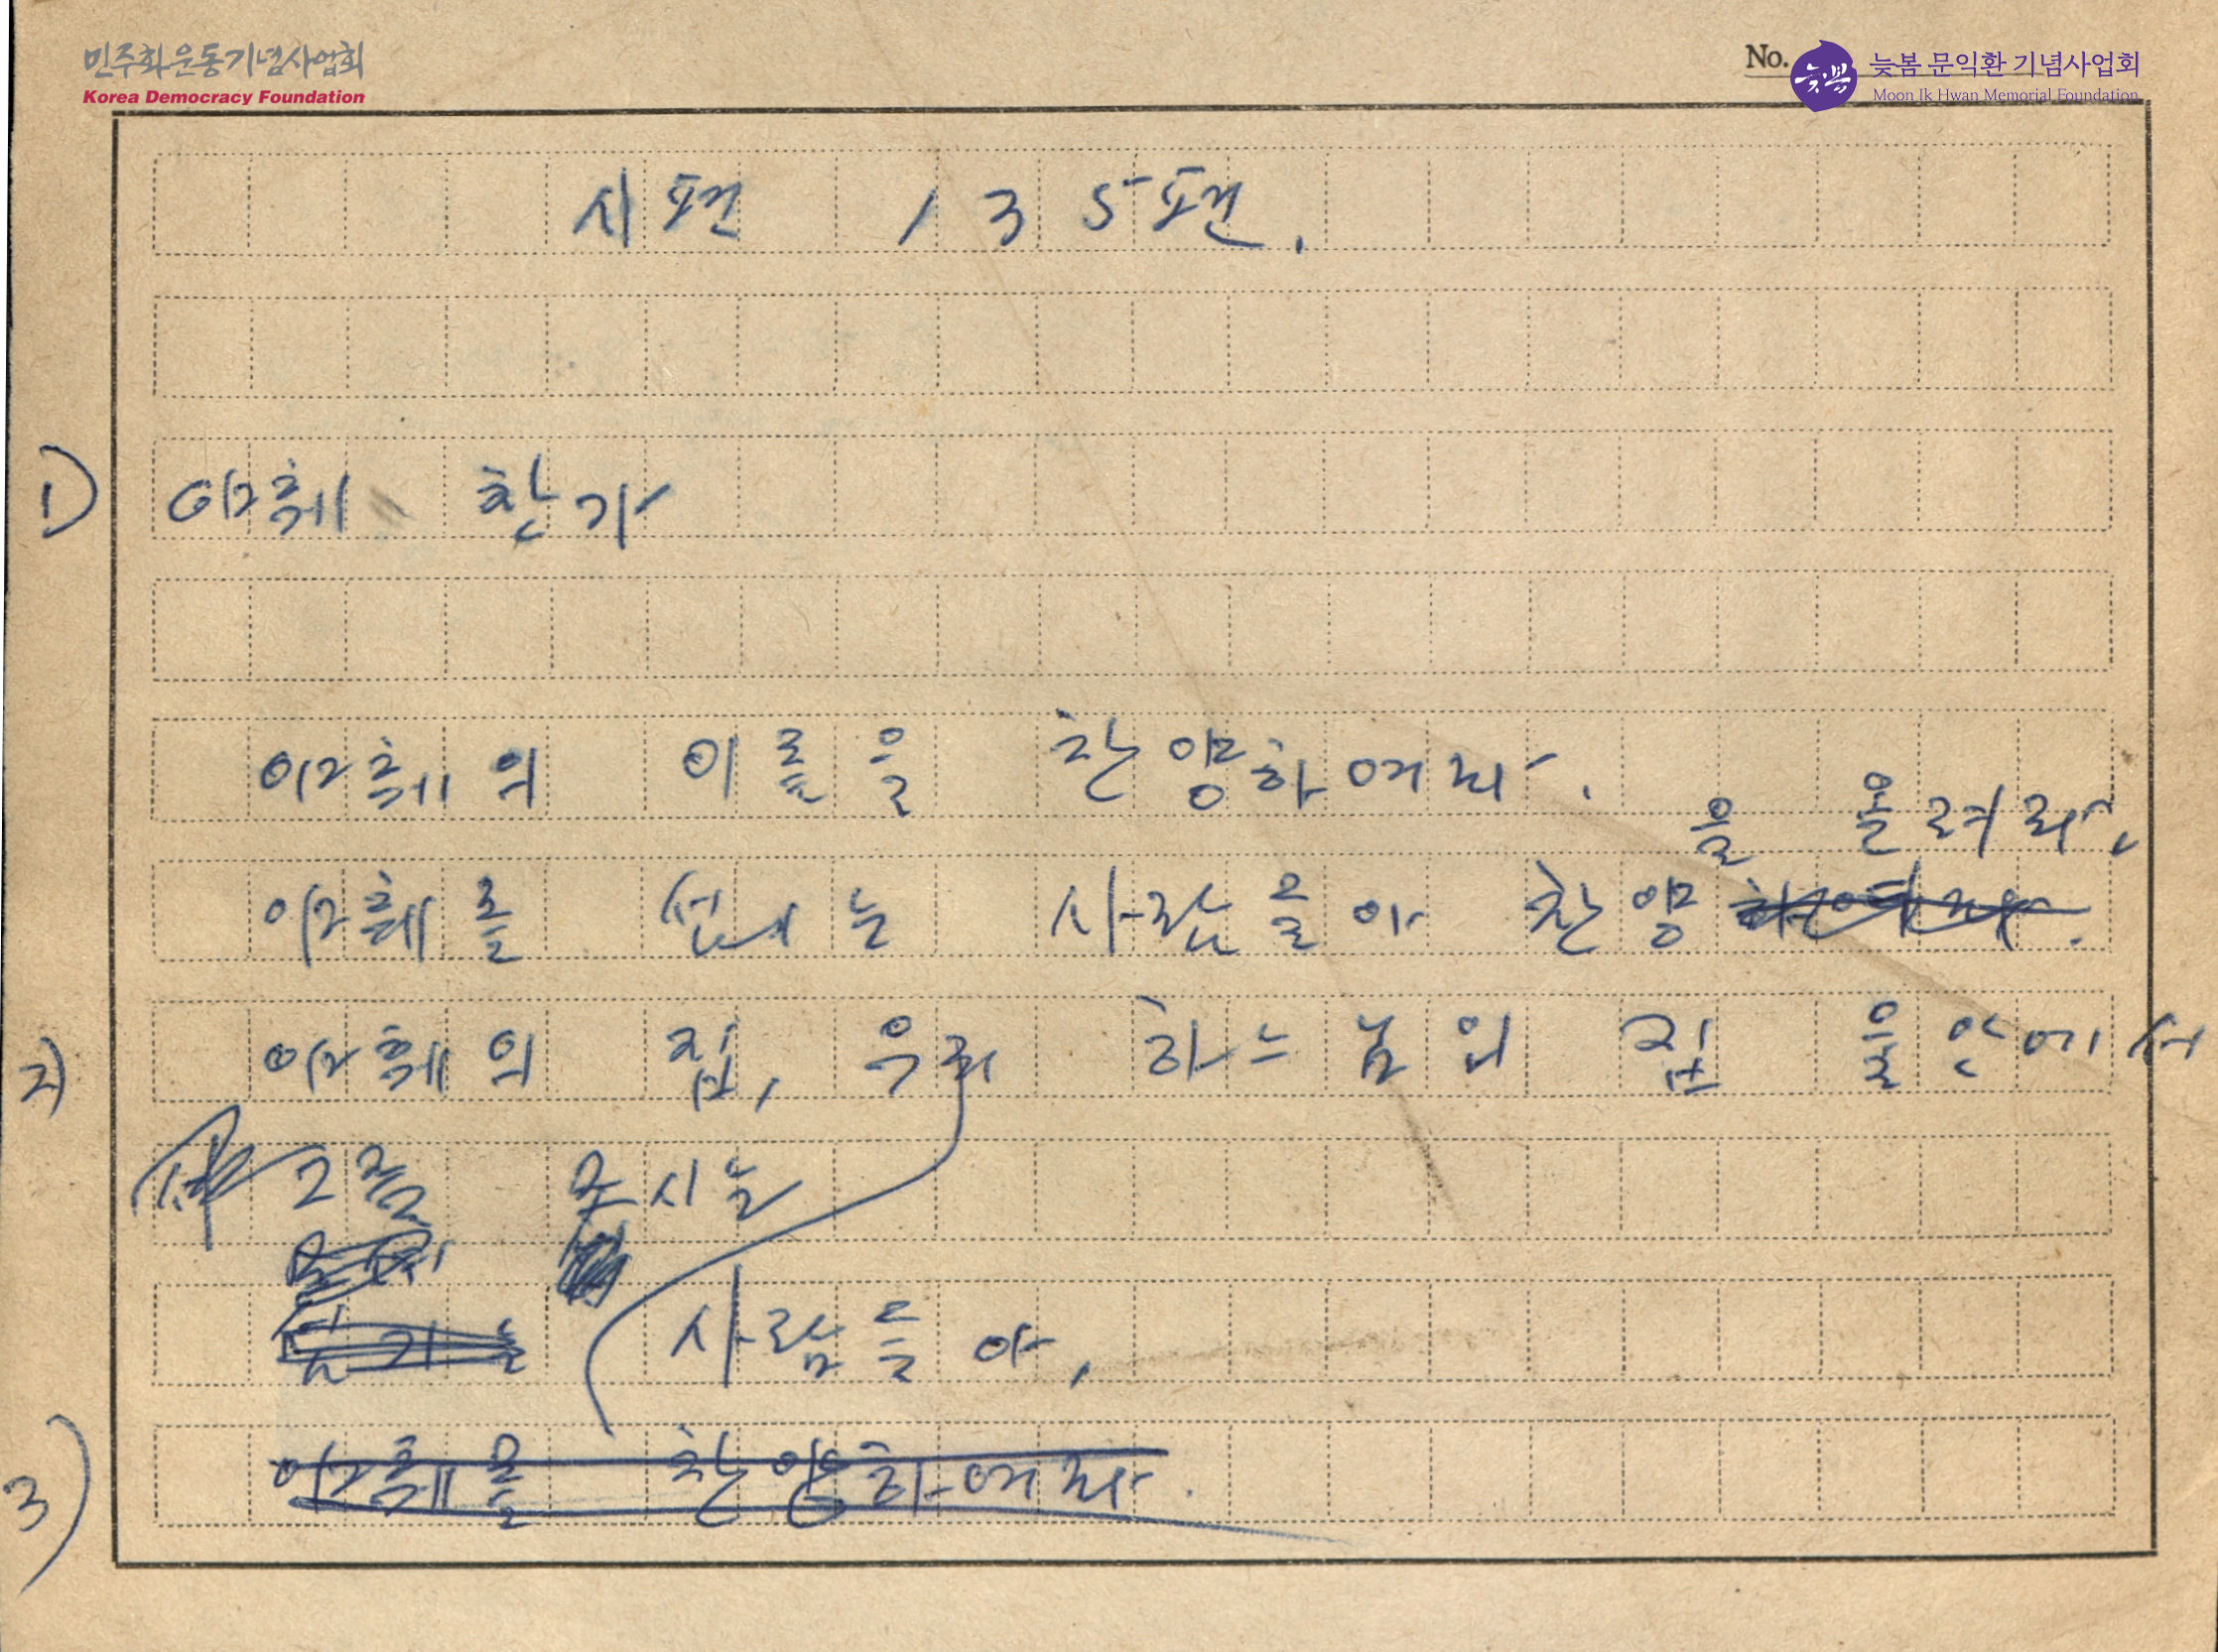 민주화운동기념사업회
Korea Democracy Foundation
No.
늦봄
늦봄 문익환 기념사업회
Moon Ik Hwan Memorial Foundation
시편 135편.
1) 야훼 찬가
야훼의 이름을 찬양하여라.
을 올려라,
야훼를 섬기는 사람들아 찬양하여라.
2) 야훼의 집, 우리 하느님의 집 울안에서
그를 모시는
섬기는 사람들아,
3) 야훼를 찬양하여라.